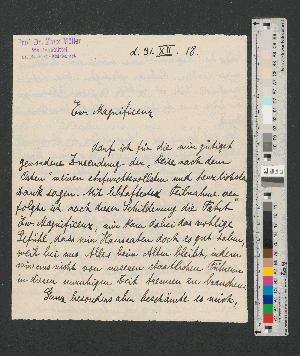 Prof. Dr. Max Müller
d. 31. XII. 18.
Ew. Magnifizenz
darf ich für die mir gütigst
gewordene Zusendung der „Reise nach dem
Osten" meinen ehrfurchtsvollsten und
Dank sagen. Mit lebhaftester Teilnahme ver-
folgte ich nach dieser Schilderung die Fahrt
Ew. Magnifizenz, mir kam dabei das wohlige
Gefühl, dass wir Hanseaten doch es gut haben,
weil bei uns Alles beim Alten bleibt, indem
wir uns nicht von unseren staatlichen Führern
in dieser unruhigen Zeit trennen zu brauchen.
Ganz besonders aber beschämte es mich,